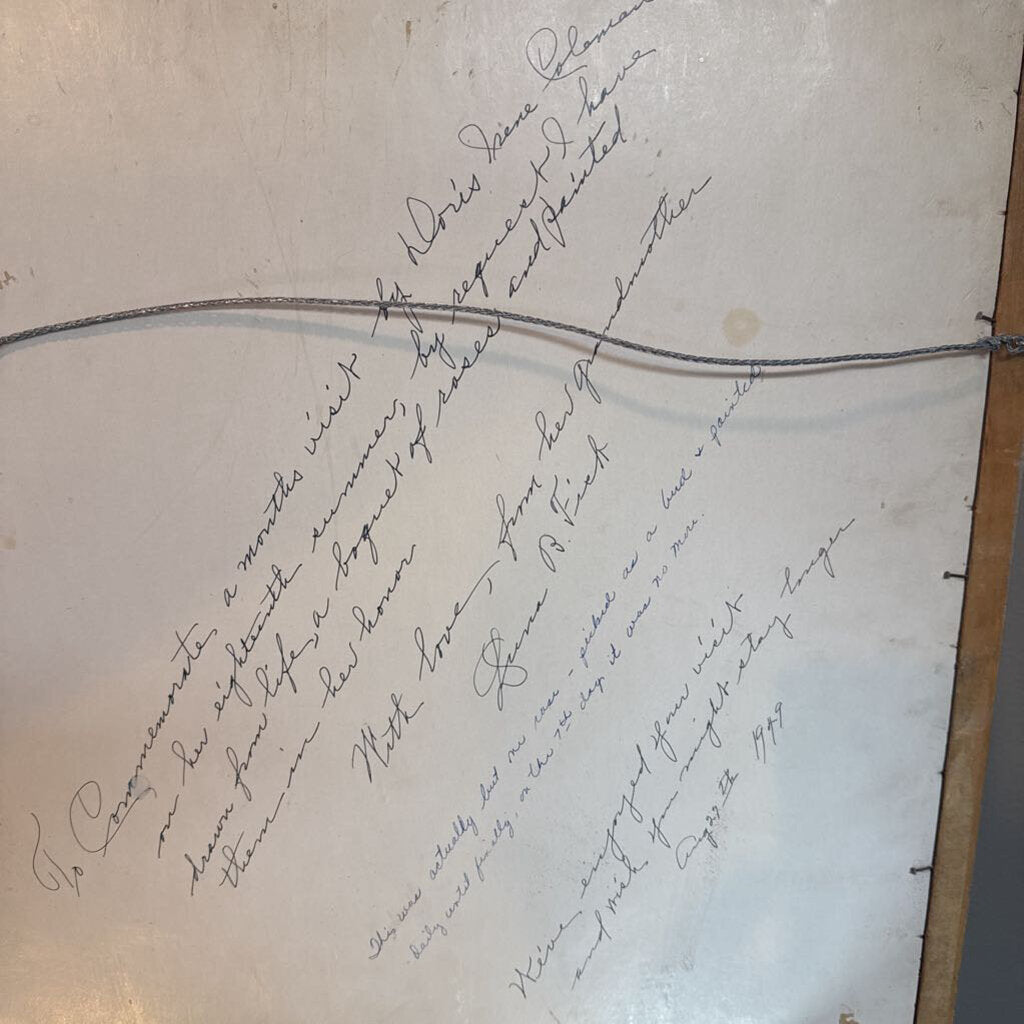 To Commemorate, a months visit by Doris Irene Coleman
on her eighteenth summer, by request I have
drawn from life, a boquet of roses and painted
them in her honor.
With love, from her grandmother
B. Fish
This was actually but one rose - picked as a bud & painted
daily until finally, on the 7th day it was no more.
We've enjoyed your visit
and wish you might stay longer
Aug 27th 1949